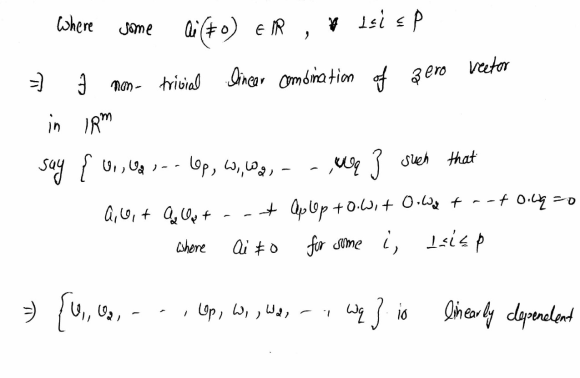 Where some ai(≠0) ∈ IR , ∀ 1≤i ≤ P
⇒ ∃ non-trivial linear combination of zero vector
in IRᵐ
say { v₁, v₂, -- vp, w₁, w₂, - - , wq } such that
a₁v₁ + a₂v₂ + - - + apvp + 0.w₁ + 0.w₂ + -- + 0.wq = 0
where ai ≠ 0 for some i, 1≤i≤p
⇒ { v₁, v₂, - - , vp, w₁, w₂, -, wq } is linearly dependent